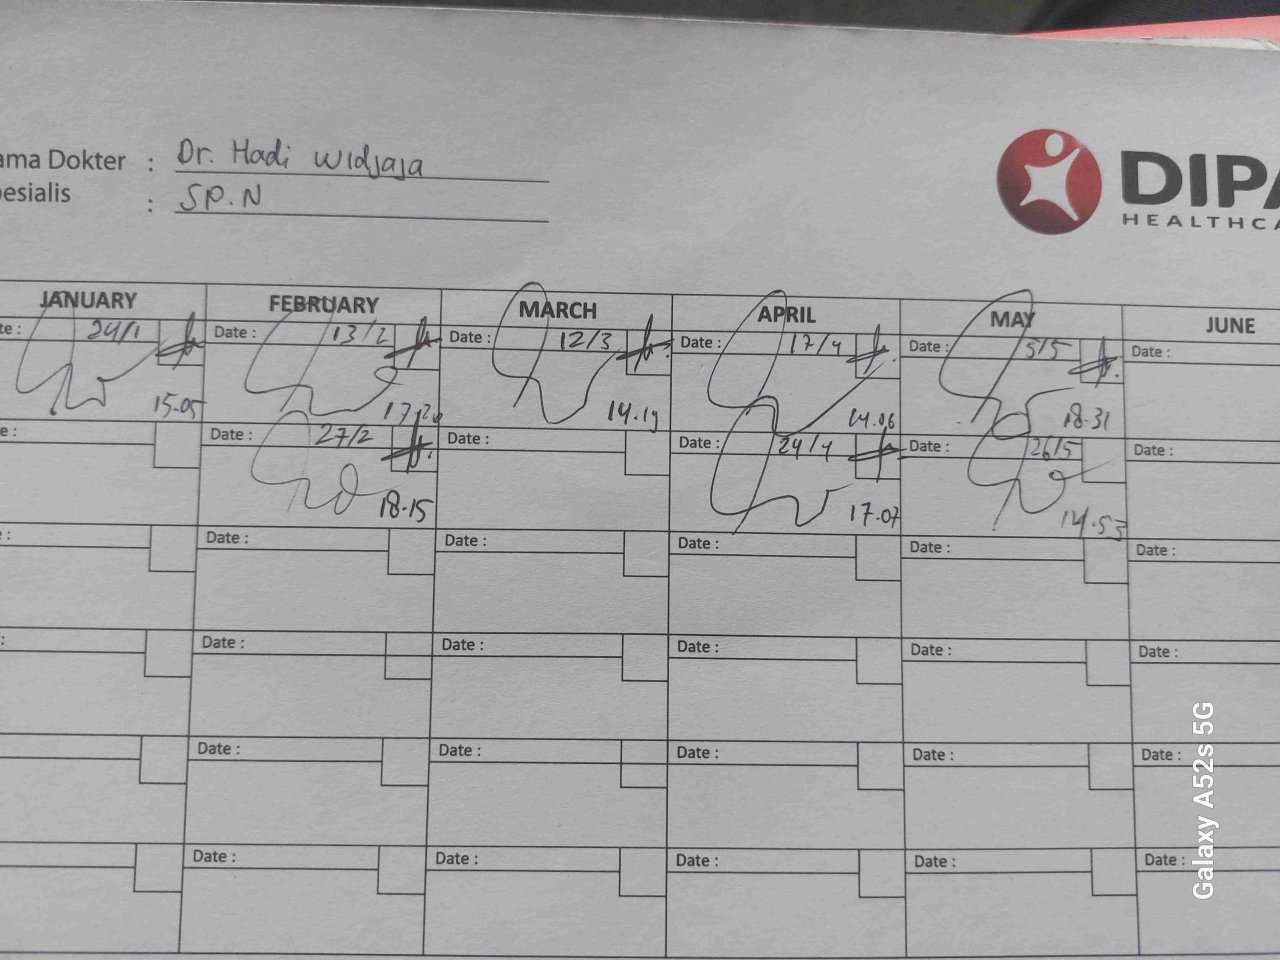 ama Dokter : Dr. Hadi Widjaja
esialis : SP.N
DIPA
HEALTHCA
JANUARY FEBRUARY MARCH APRIL MAY JUNE
te : 24/1 Date : 13/2 Date : 12/3 Date : 17/4 Date : 5/5 Date :
15.05 17.20 14.19 14.06 18.31
e : Date : 27/2 Date : Date : 24/4 Date : 26/5 Date :
18.15 17.07 14.53
: Date : Date : Date : Date : Date :
: Date : Date : Date : Date : Date :
Date : Date : Date : Date : Date :
Date : Date : Date : Date : Date :
Galaxy A52s 5G